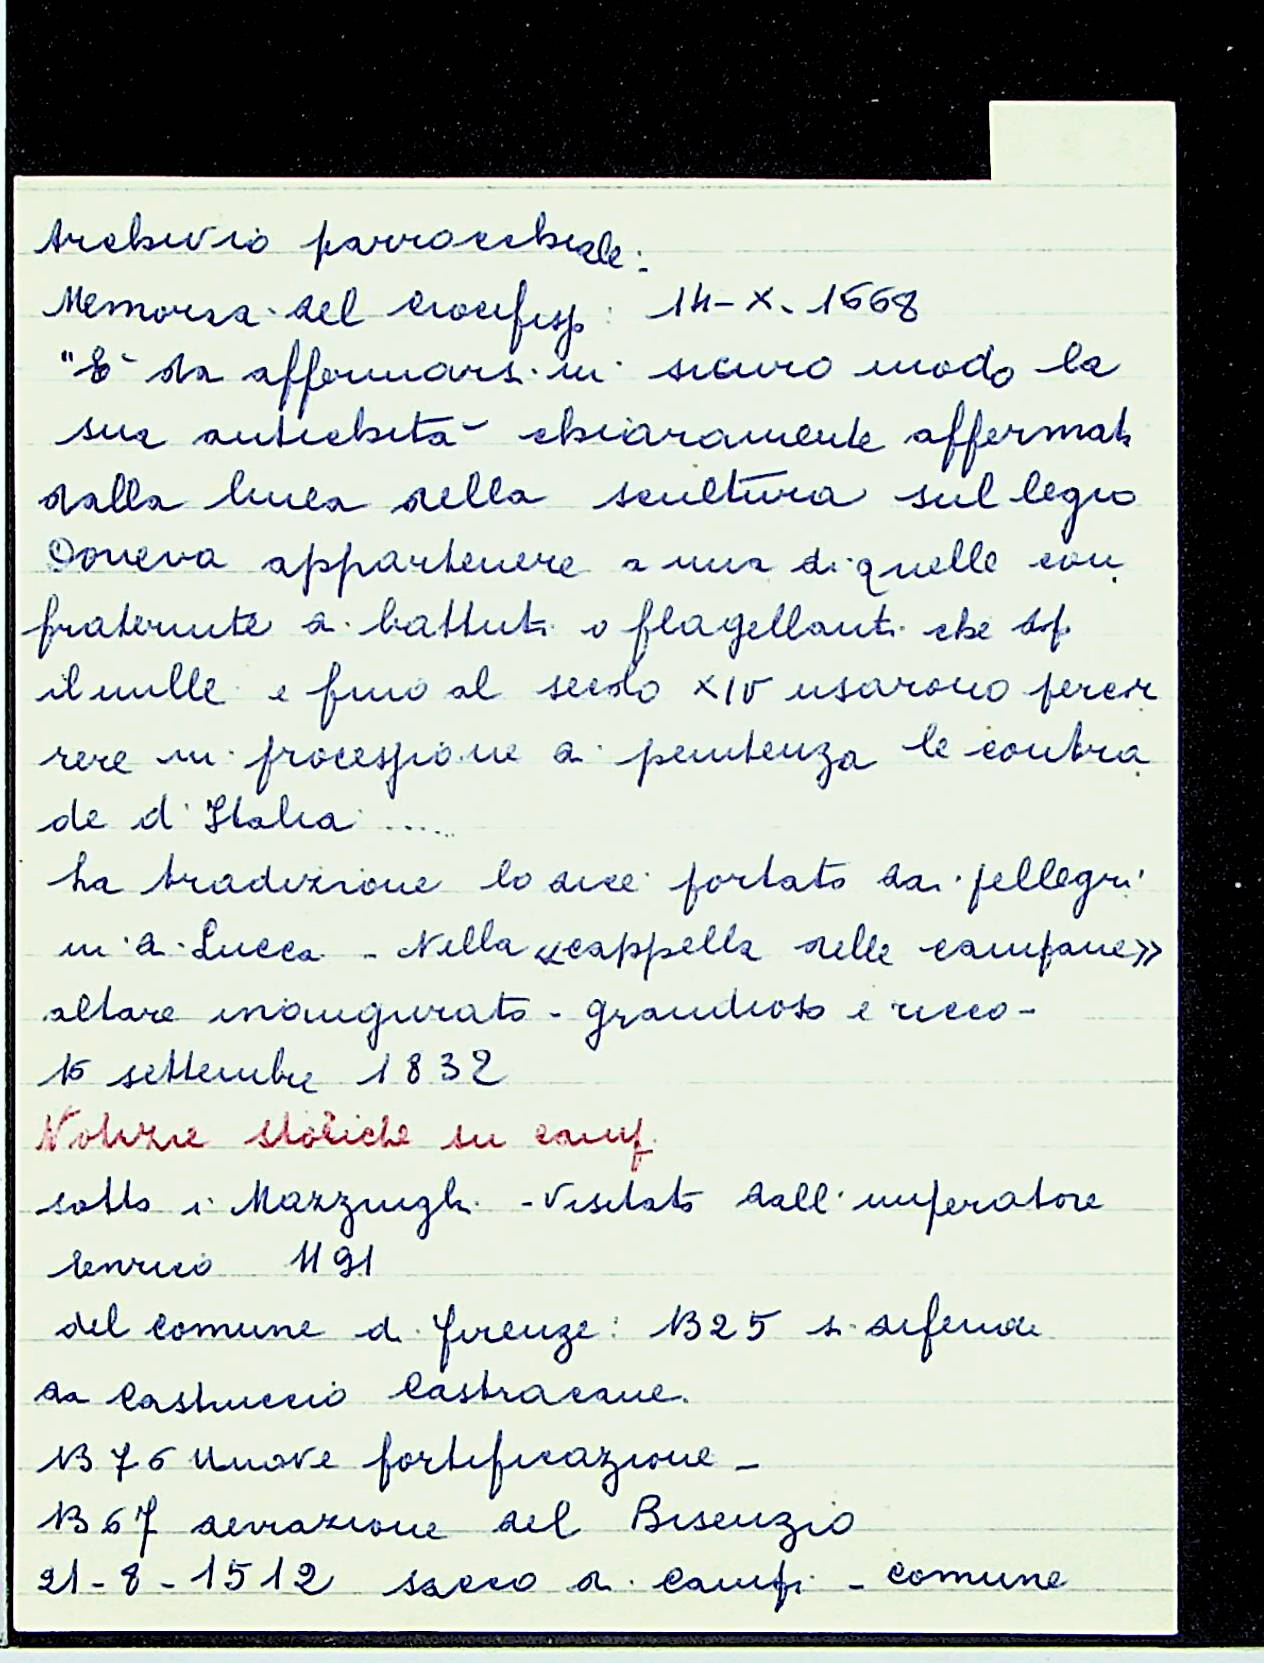 Archivio parrocchiale:
Memoria del Crocifisso: 14-X-1668
"È da affermarsi in sicuro modo la
sua antichità chiaramente affermata
dalla linea della scultura sul legno
Doveva appartenere a una di quelle con
fraternite di battuti o flagellanti che
il mille e fino al secolo XIV usarono percor
rere in processione di penitenza le contra
de d'Italia .....
La tradizione lo dice portato dai pellegri
ni di Lucca - Nella «cappella delle campane»
altare inaugurato - grandioso e ricco -
15 settembre 1832
Notizie storiche su Campi
sotto i Mazzinghi - Visitato dall'imperatore
Enrico 1191
del Comune di Firenze: 1325 si difende
da Castruccio Castracane.
1376 Nuove fortificazione -
1367 deviazione del Bisenzio
21-8-1512 sacco di Campi - Comune